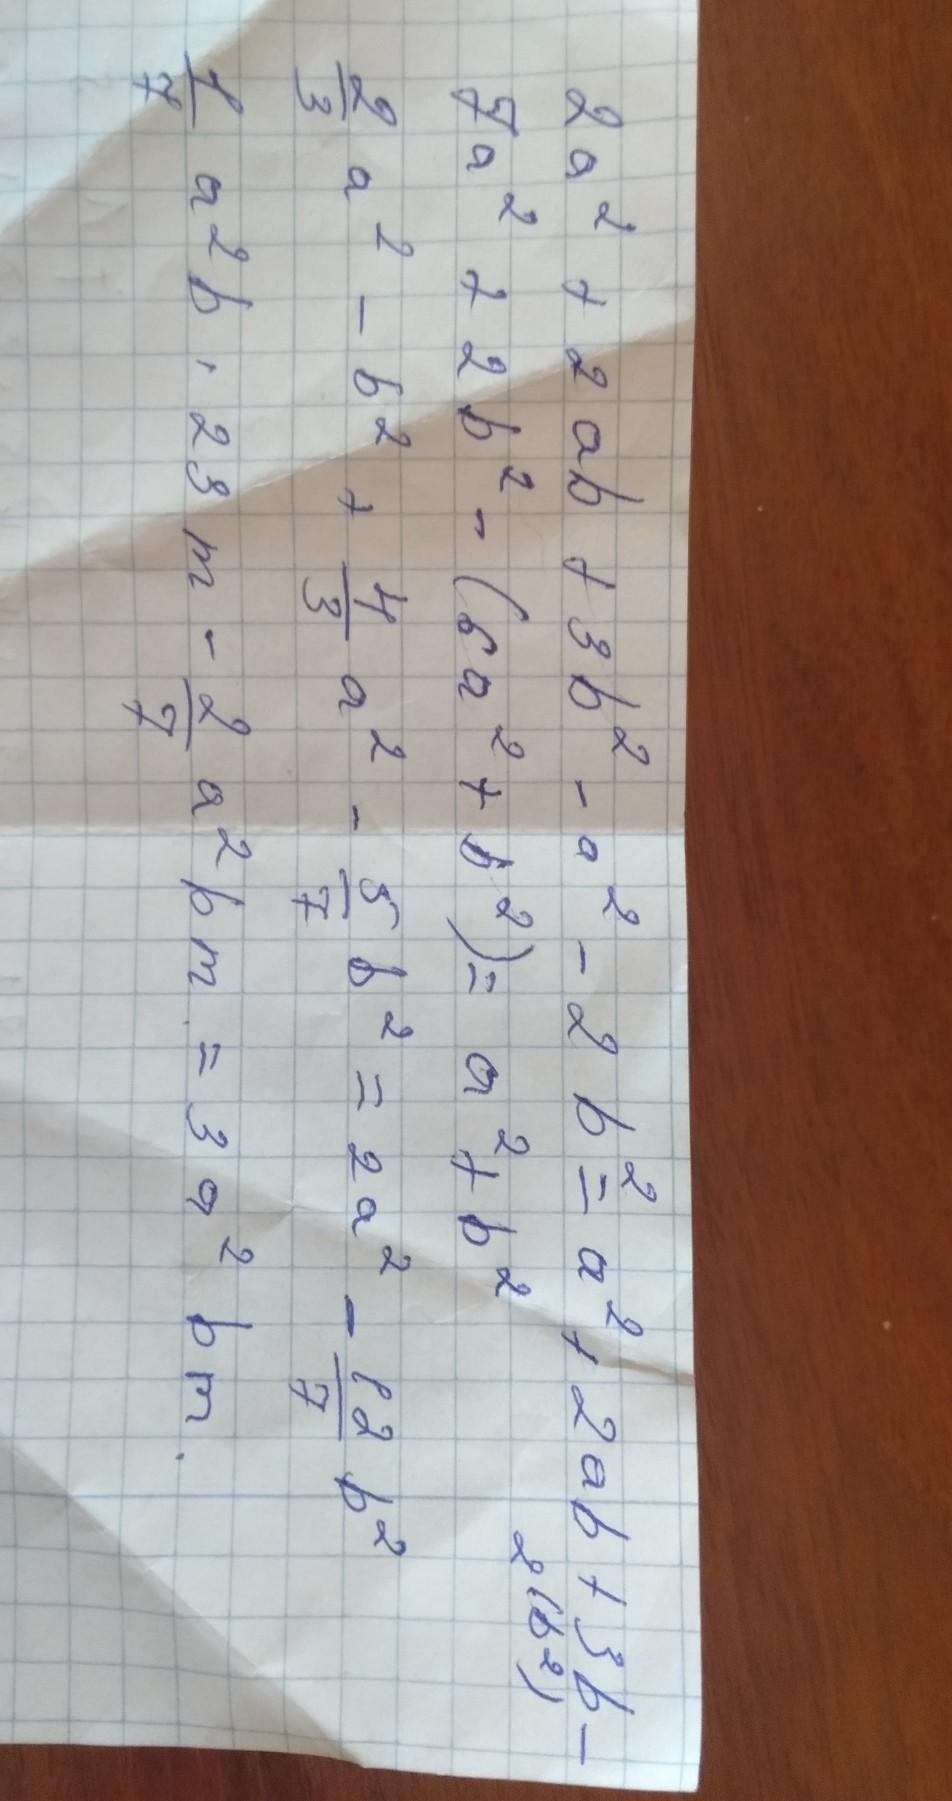 2a² + 2ab + 3b² - a² - 2b² = a² + 2ab + 3b -
2(b²)
7a² + 2b² - (6a² + b²) = a² + b²
2/3 a² - b² + 4/3 a² - 5/7 b² = 2a² - 12/7 b²
1/7 a²b · 23m - 2/7 a²bm = 3a²bm.